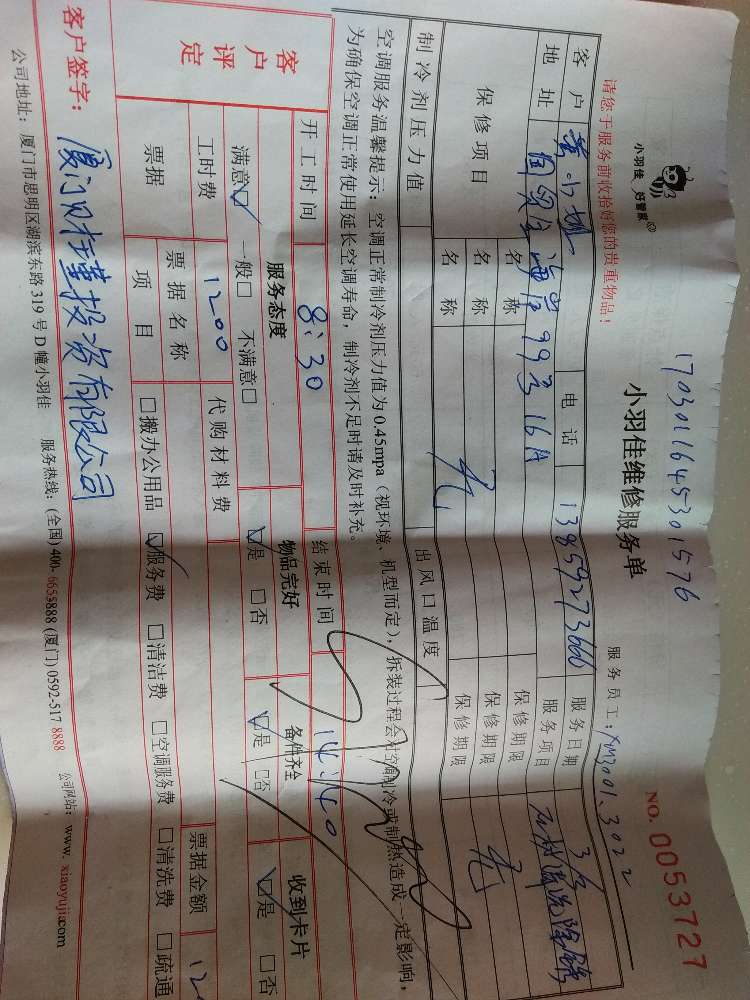 小羽佳 好管家
1703011645301576
小羽佳维修服务单
NO. 0053727
请您于服务前收拾好您的贵重物品!
服务员工: XM3001、3022
客户 电话 13859273660 服务日期
地址 99号16A 服务项目
保修项目 名称 无 保修期限 无
名称 保修期限
名称 保修期限
制冷剂压力值 出风口温度
空调服务温馨提示: 空调正常制冷剂压力值为0.45mpa (视环境、机型而定), 拆装过程会对空调制冷或制热造成一定影响,
为确保空调正常使用延长空调寿命, 制冷剂不足时请及时补充。
开工时间 8:30 结束时间 14:40
客户评定 服务态度 物品完好 备件齐全 收到卡片
满意☑ 一般□ 不满意□ ☑是 □否 ☑是 □否 ☑是 □否
工时费 1200 代购材料费
票据 票据名称 票据金额
项目 □搬办公用品 ☑服务费 □清洁费 □空调服务费 □清洗费 □疏通
客户签字: 厦门 投资有限公司
公司地址: 厦门市思明区湖滨东路319号D幢小羽佳 服务热线: (全国)400-6655888 (厦门)0592-517 8888 公司网站: www. xiaoyujia.com